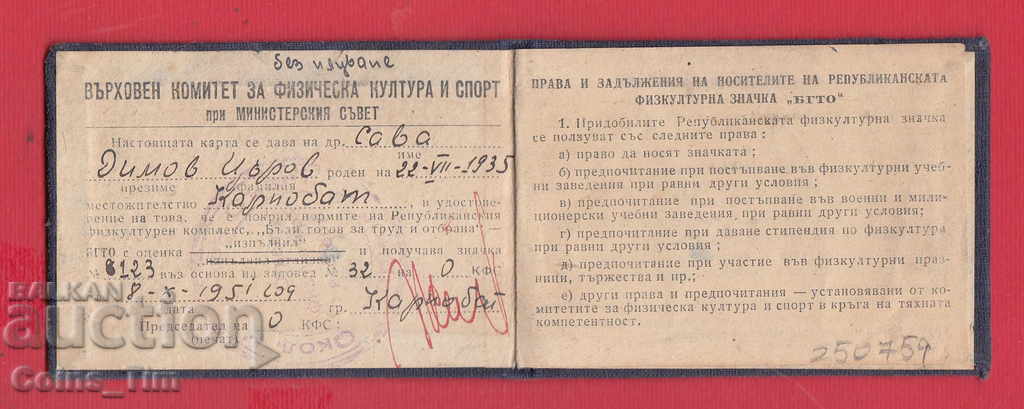 без плуване
ВЪРХОВЕН КОМИТЕТ ЗА ФИЗИЧЕСКА КУЛТУРА И СПОРТ
при МИНИСТЕРСКИЯ СЪВЕТ
Настоящата карта се дава на др. Сава
име
Димов Църов роден на 22-VII-1935
презиме фамилия
местожителство Карнобат, в удостове-
рение на това, че е покрил нормите на Републикансия
физкултурен комплекс, „Бъди готов за труд и отбрана" —
„изпълнил"
БГТО с оценка и получава значка
№ 6123 въз основа на заповед № 32 на О КФС
8-X-1951 год гр. Карнобат
дата
Председател на О КФС:
(печат)
ОКОЛ
ПРАВА И ЗАДЪЛЖЕНИЯ НА НОСИТЕЛИТЕ НА РЕПУБЛИКАНСКАТА
ФИЗКУЛТУРНА ЗНАЧКА „БГТО"
1. Придобилите Републиканската физкултурна значка
се ползуват със следните права:
а) право да носят значката;
б) предпочитание при постъпване във физкултурни учеб-
ни заведения при равни други условия;
в) предпочитание при постъпване във военни и мили-
ционерски учебни заведения, при равни други условия;
г) предпочитание при даване стипендия по физкултура
при равни други условия;
д) предпочитание при участие във физкултурни праз-
ници, тържества и пр.;
е) други права и предпочитания — установявани от ко-
митетите за физическа култура и спорт в кръга на тяхната
компетентност.
250759
BALKAN
auction
Coins_Tim